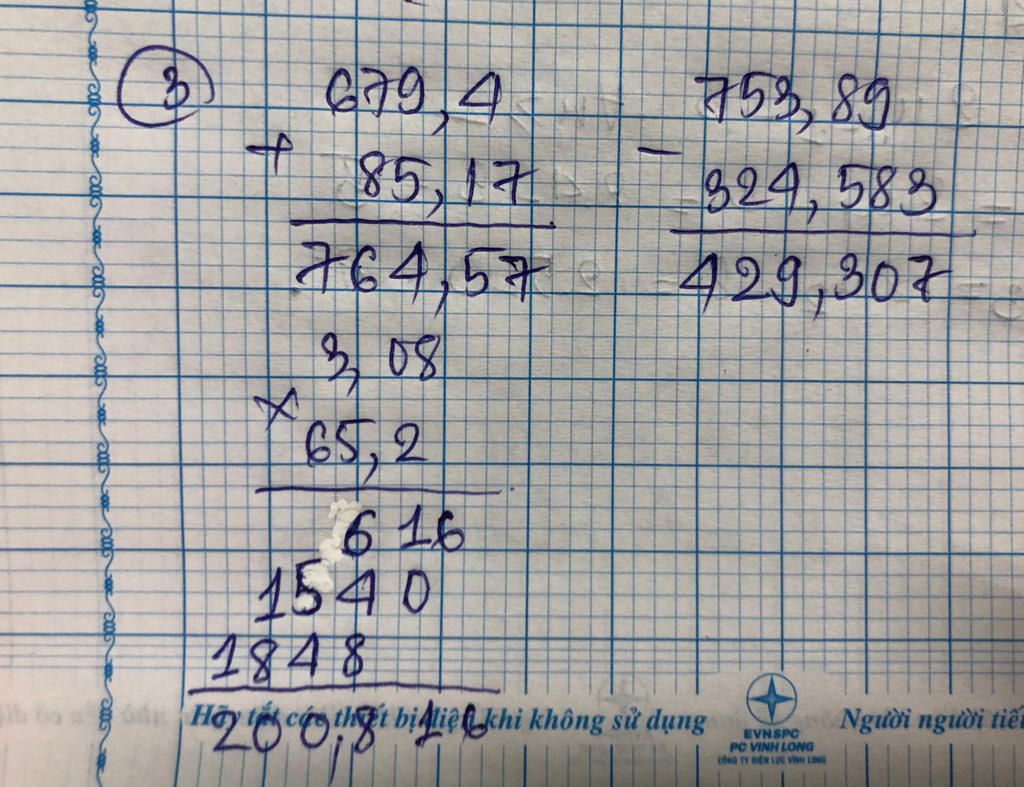 3
679,4
+
85,17
764,57
753,89
−
324,583
429,307
3,08
×
65,2
616
1540
1848
200,816
Hãy tắt các thiết bị điện khi không sử dụng
EVNSPC
PC VINH LONG
CÔNG TY ĐIỆN LỰC VĨNH LONG
Người người tiế